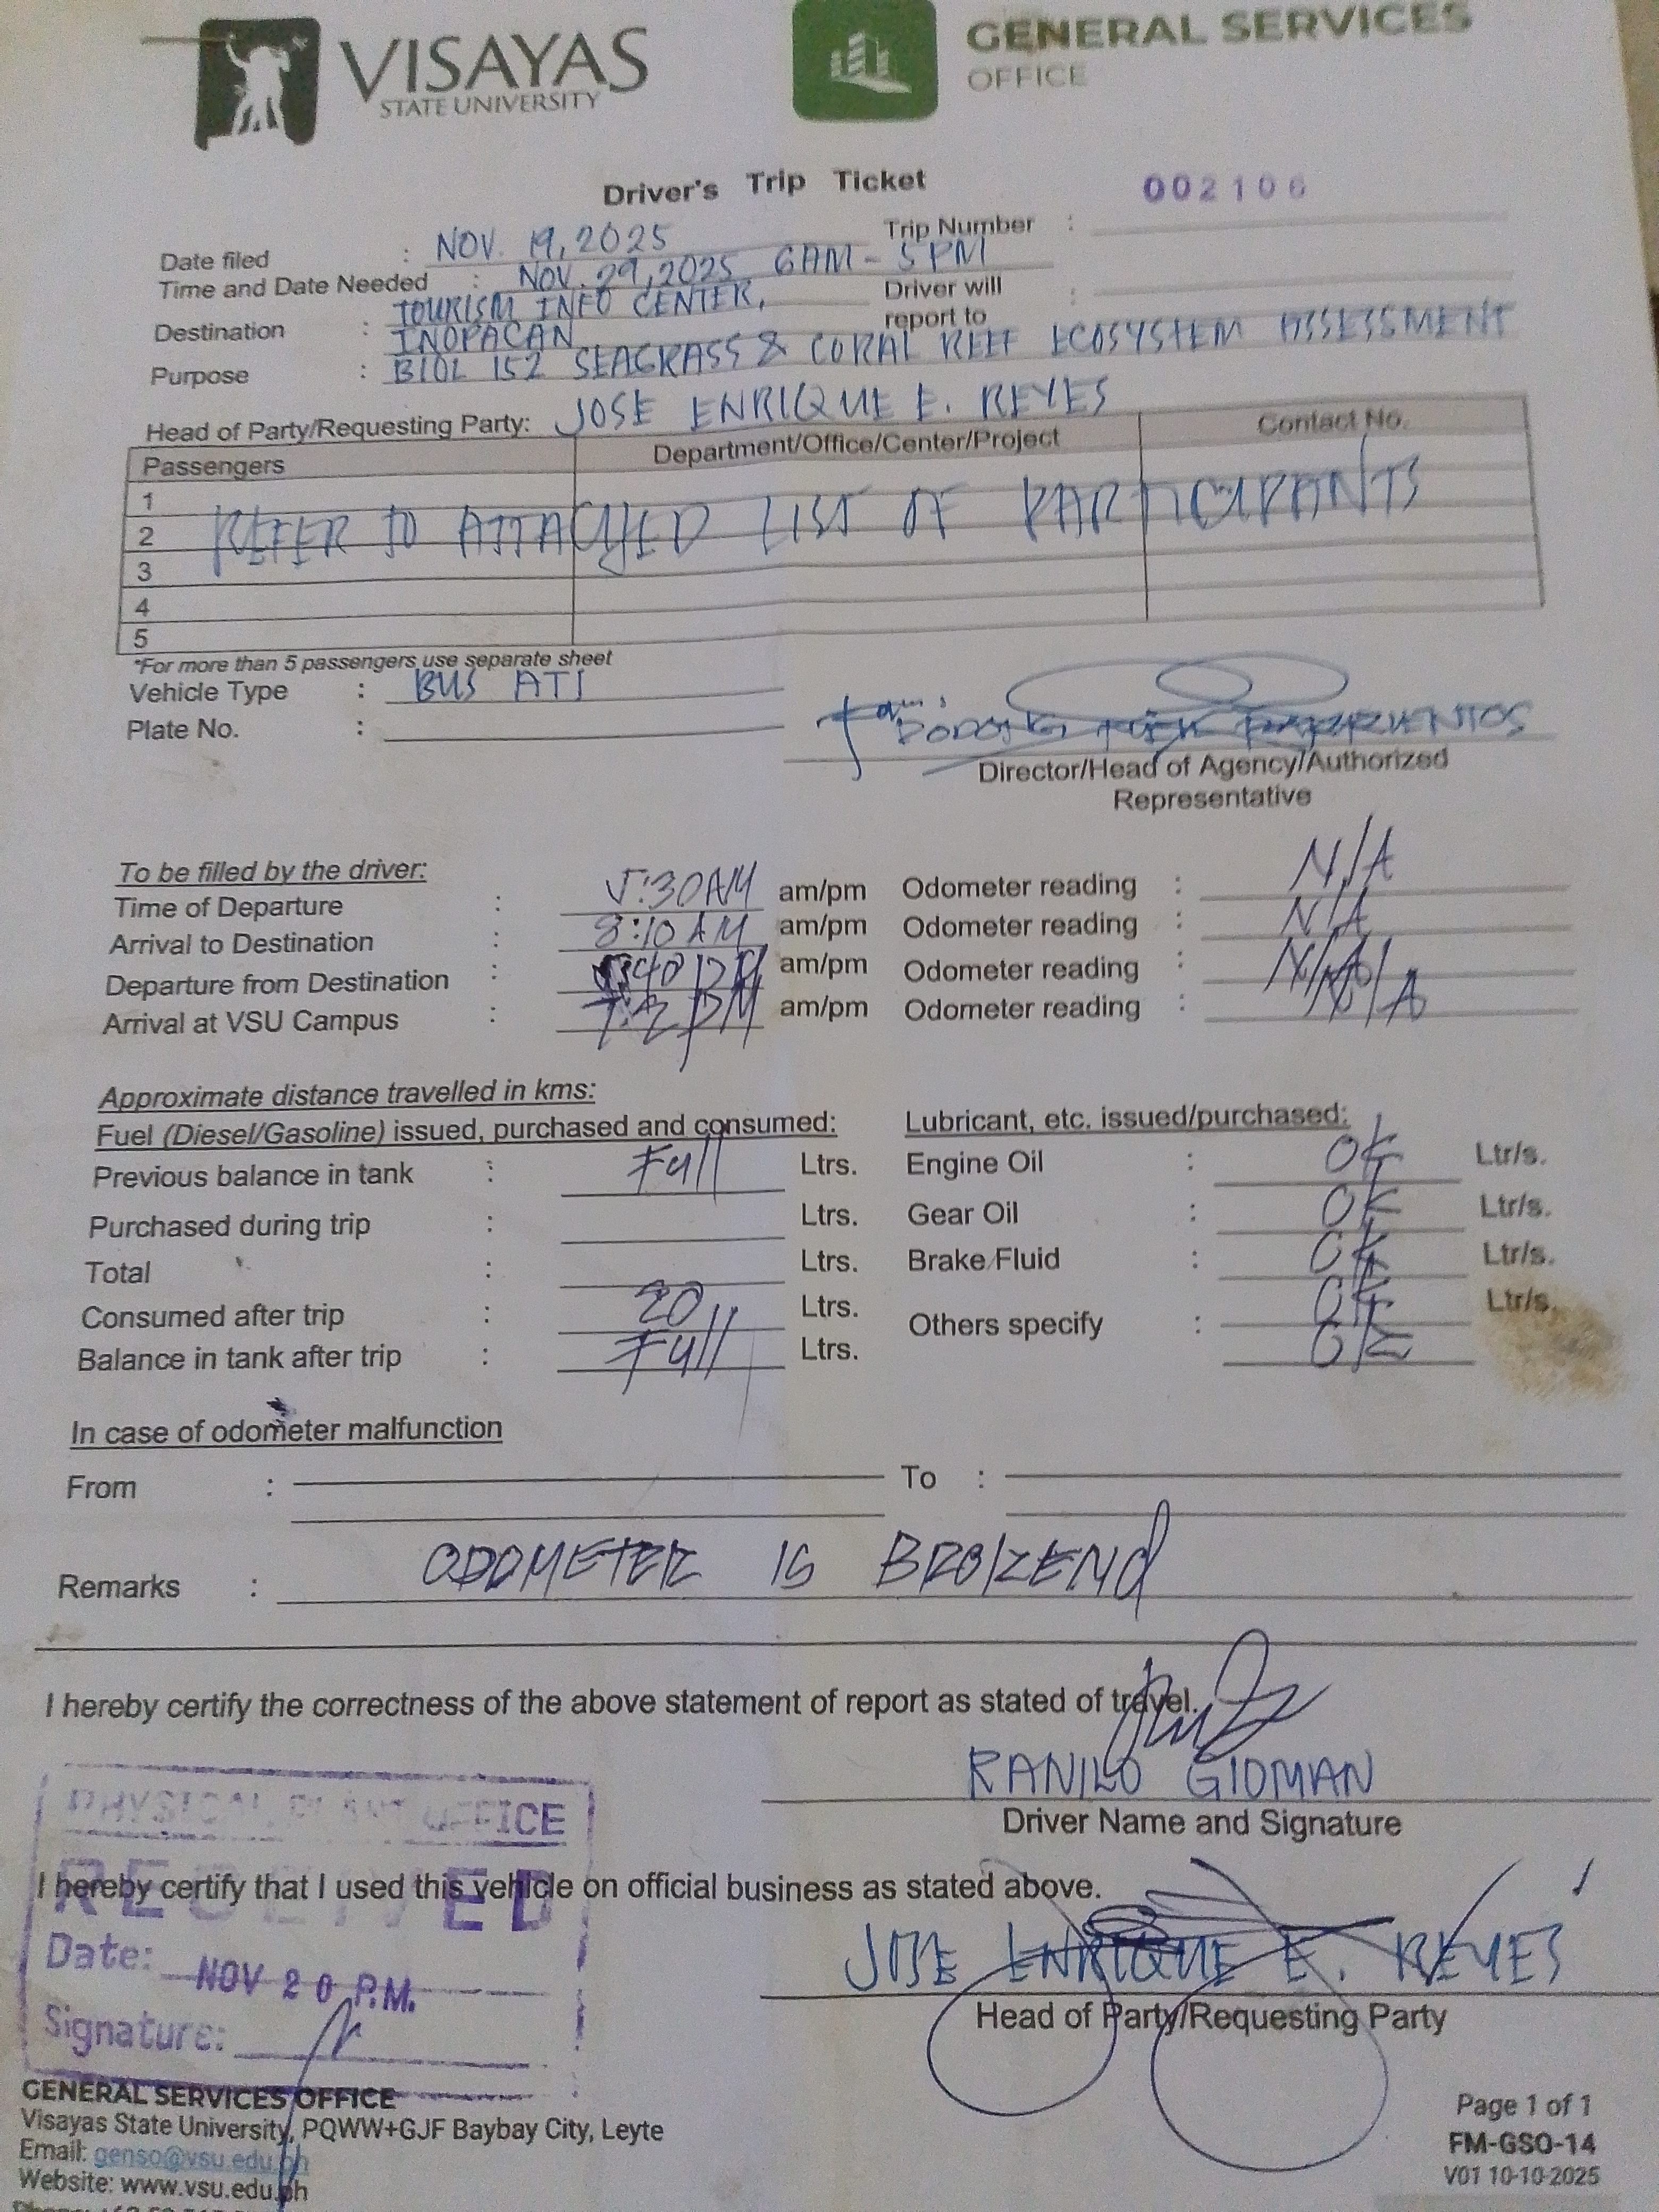 VISAYAS
STATE UNIVERSITY
GENERAL SERVICES
OFFICE
Driver's Trip Ticket
002106
Date filed : NOV. 19, 2025
Trip Number :
Time and Date Needed : NOV. 29, 2025 6AM - 5PM
Destination : TOURISM INFO CENTER,
INOPACAN
Driver will report to :
Purpose : BIOL 152 SEAGRASS & CORAL REEF ECOSYSTEM ASSESSMENT
Head of Party/Requesting Party: JOSE ENRIQUE E. REYES
Passengers Department/Office/Center/Project Contact No.
1
2
3
4
5
REFER TO ATTACHED LIST OF PARTICIPANTS
*For more than 5 passengers use separate sheet
Vehicle Type : BUS ATI
Plate No. :
Director/Head of Agency/Authorized
Representative
To be filled by the driver:
Time of Departure : 5:30AM am/pm Odometer reading : N/A
Arrival to Destination : 8:10 AM am/pm Odometer reading : N/A
Departure from Destination : am/pm Odometer reading : N/A
Arrival at VSU Campus : am/pm Odometer reading : N/A
Approximate distance travelled in kms:
Fuel (Diesel/Gasoline) issued, purchased and consumed: Lubricant, etc. issued/purchased:
Previous balance in tank : Full Ltrs. Engine Oil : OK Ltr/s.
Purchased during trip : Ltrs. Gear Oil : OK Ltr/s.
Total : Ltrs. Brake Fluid : OK Ltr/s.
Consumed after trip : 20 Ltrs. Others specify : OK Ltr/s.
Balance in tank after trip : Full Ltrs. OK
In case of odometer malfunction
From : To :
Remarks : ODOMETER IS BROKEND
I hereby certify the correctness of the above statement of report as stated of travel.
RANILO GIOMAN
Driver Name and Signature
PHYSICAL PLANT OFFICE
RECEIVED
I hereby certify that I used this vehicle on official business as stated above.
Date: NOV 20 P.M.
Signature:
JOSE ENRIQUE E. REYES
Head of Party/Requesting Party
GENERAL SERVICES OFFICE
Visayas State University, PQWW+GJF Baybay City, Leyte
Email: genso@vsu.edu.ph
Website: www.vsu.edu.ph
Page 1 of 1
FM-GSO-14
V01 10-10-2025